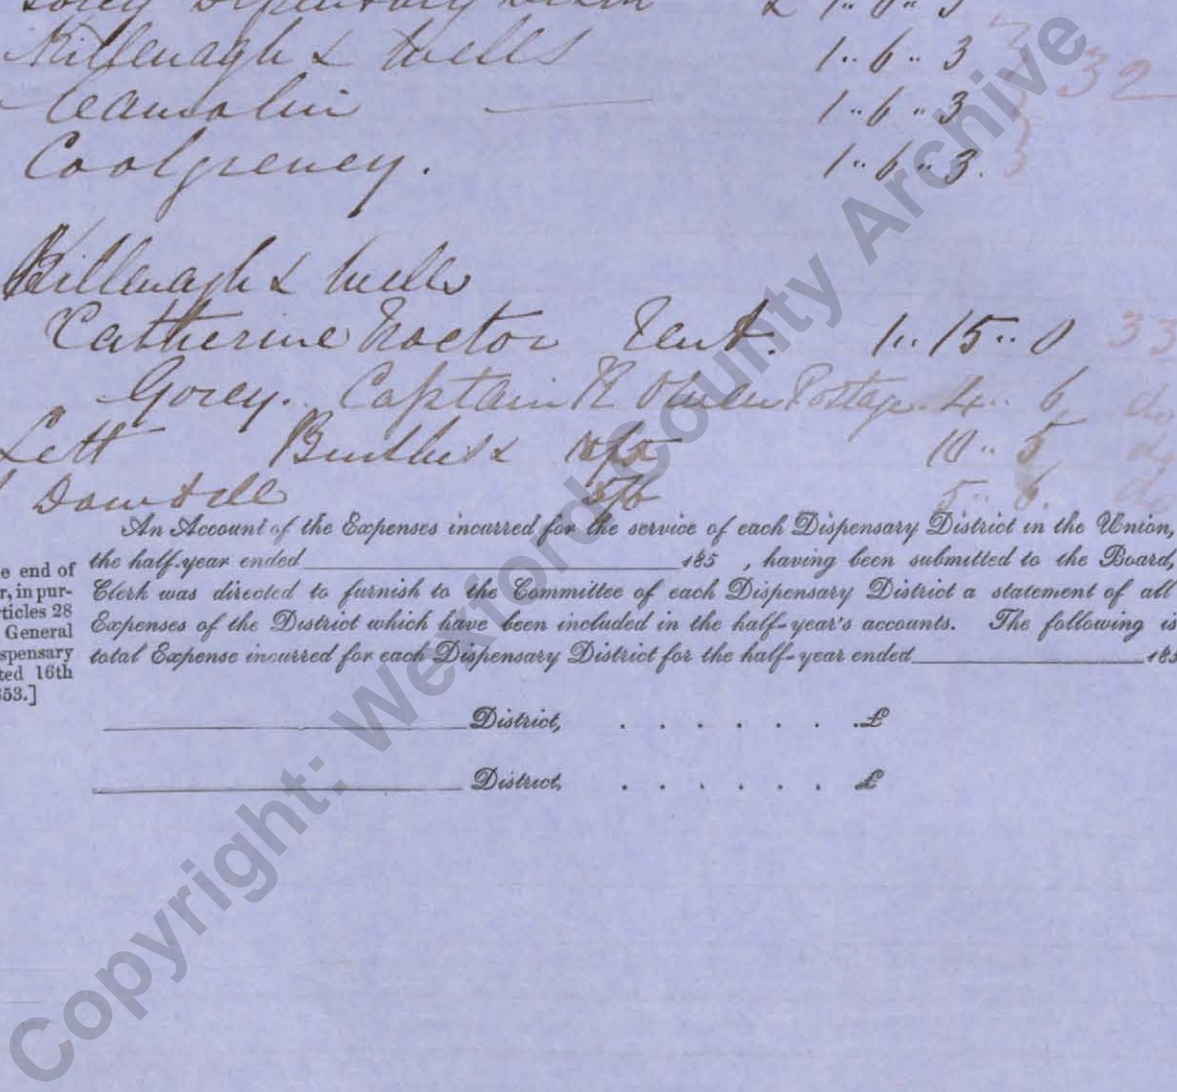 Gorey Dispensary Distn £ 1.. 6.. 3
Killenagh & Wells 1.. 6.. 3
Camolin 1.. 6.. 3 32
Coolgreney. 1.. 6.. 3.
Killenagh & Wells
Catherine Proctor Rent. 1.. 15.. 0 33
Gorey. Captain R Owen Postage 4.. 6 do
Lett 10/5 10.. 5 do
5/6 5.. 6. do
An Account of the Expenses incurred for the service of each Dispensary District in the Union,
the half-year ended 185 , having been submitted to the Board,
Clerk was directed to furnish to the Committee of each Dispensary District a statement of all
Expenses of the District which have been included in the half-year's accounts. The following is
total Expense incurred for each Dispensary District for the half-year ended 185
e end of
r, in pur-
ticles 28
General
spensary
ted 16th
353.]
District, . . . . . . . £
District, . . . . . . £
Copyright: Wexford County Archive